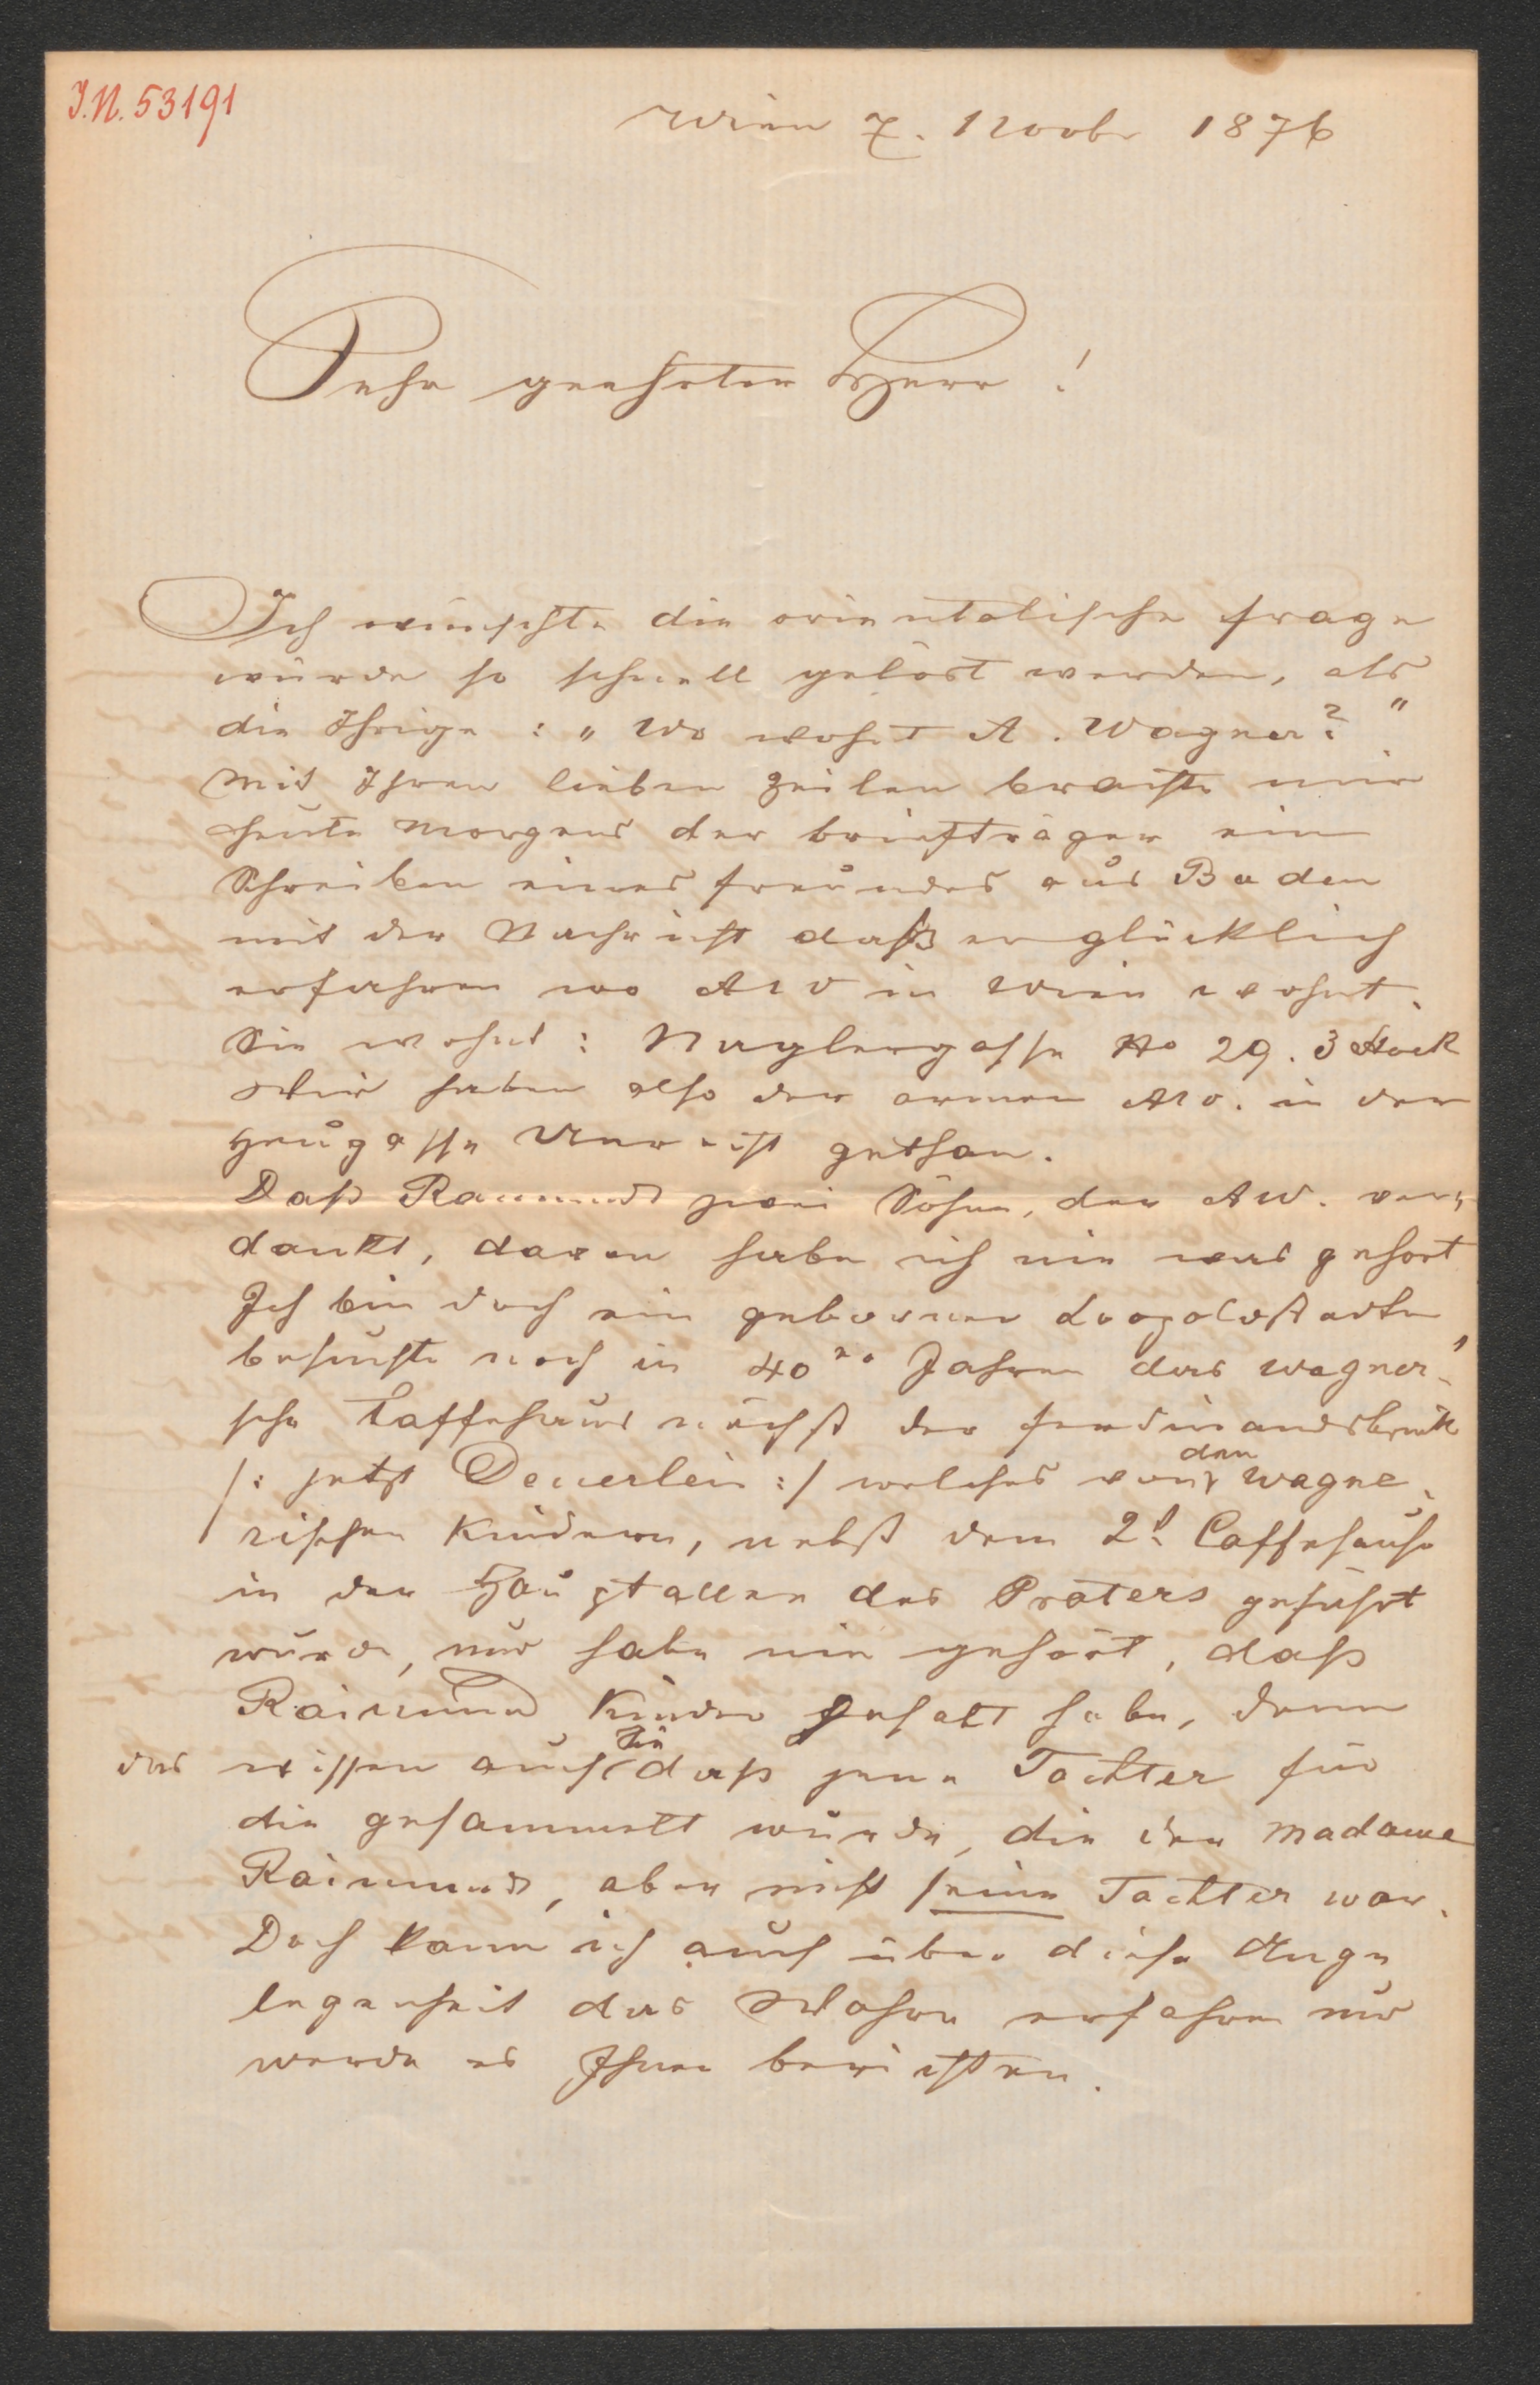 I.N. 53191
Wien 7. Novbr 1876
Sehr geehrter Herr !
Ich wünschte die orientalische Frage
würde so schnell gelöst werden, als
die Ihrige : „ Wo wohnt A. Wagner? “
Mit Ihren lieben Zeilen brachte mir
heute Morgens der Briefträger ein
Schreiben eines Freundes aus Baden
mit der Nachricht daß er glücklich
erfahren wo AW in Wien wohnt.
Sie wohnt : Naglergasse No 29. 3 Stock
Wir haben also der armen AW. in der
Heugasse Unrecht gethan.
Daß Raimund zwei Söhne, der AW. ver„
dankt, davon habe ich nie was gehört
Ich bin doch ein geborner Leopoldstädter
besuchte noch in 40er Jahren das Wagner„
sche Caffehaus nächst der Ferdinandsbrücke
/: jetzt Deuerlein :/ welches von den Wagne„
rischen Kindern, nebst dem 2t Caffehause
in der Hauptallee des Praters geführt
wurde, und habe nie gehört, daß
Raimund Kinder gehabt habe, denn
das wissen auch Sie daß jene Tochter für
die gesammelt wurde, die der Madame
Raimund, aber nicht seine Tochter war.
Doch kann ich auch über diese Ange
legenheit das Wahre erfahren und
werde es Ihnen berichten.